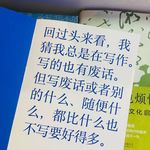 回过头来看，我
猜我总是在写作。
写的也有废话。
但写废话或者别
的什么、随便什
么，都比什么也
不写要好得多。
色烦恼
文化启